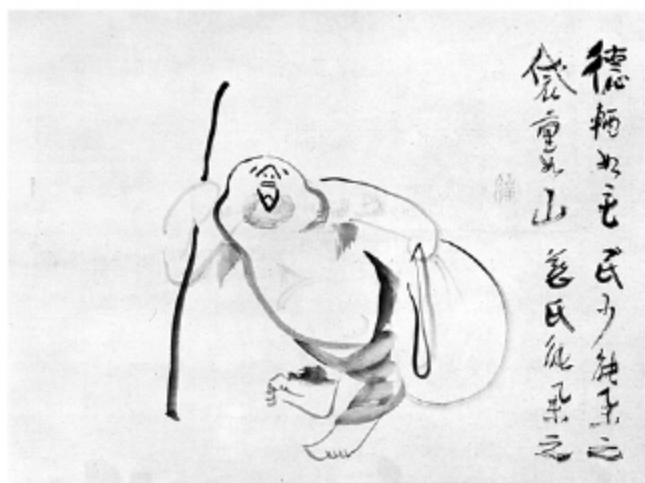 德輶如毛 民少能舉之
袋重如山 慈氏能舉之